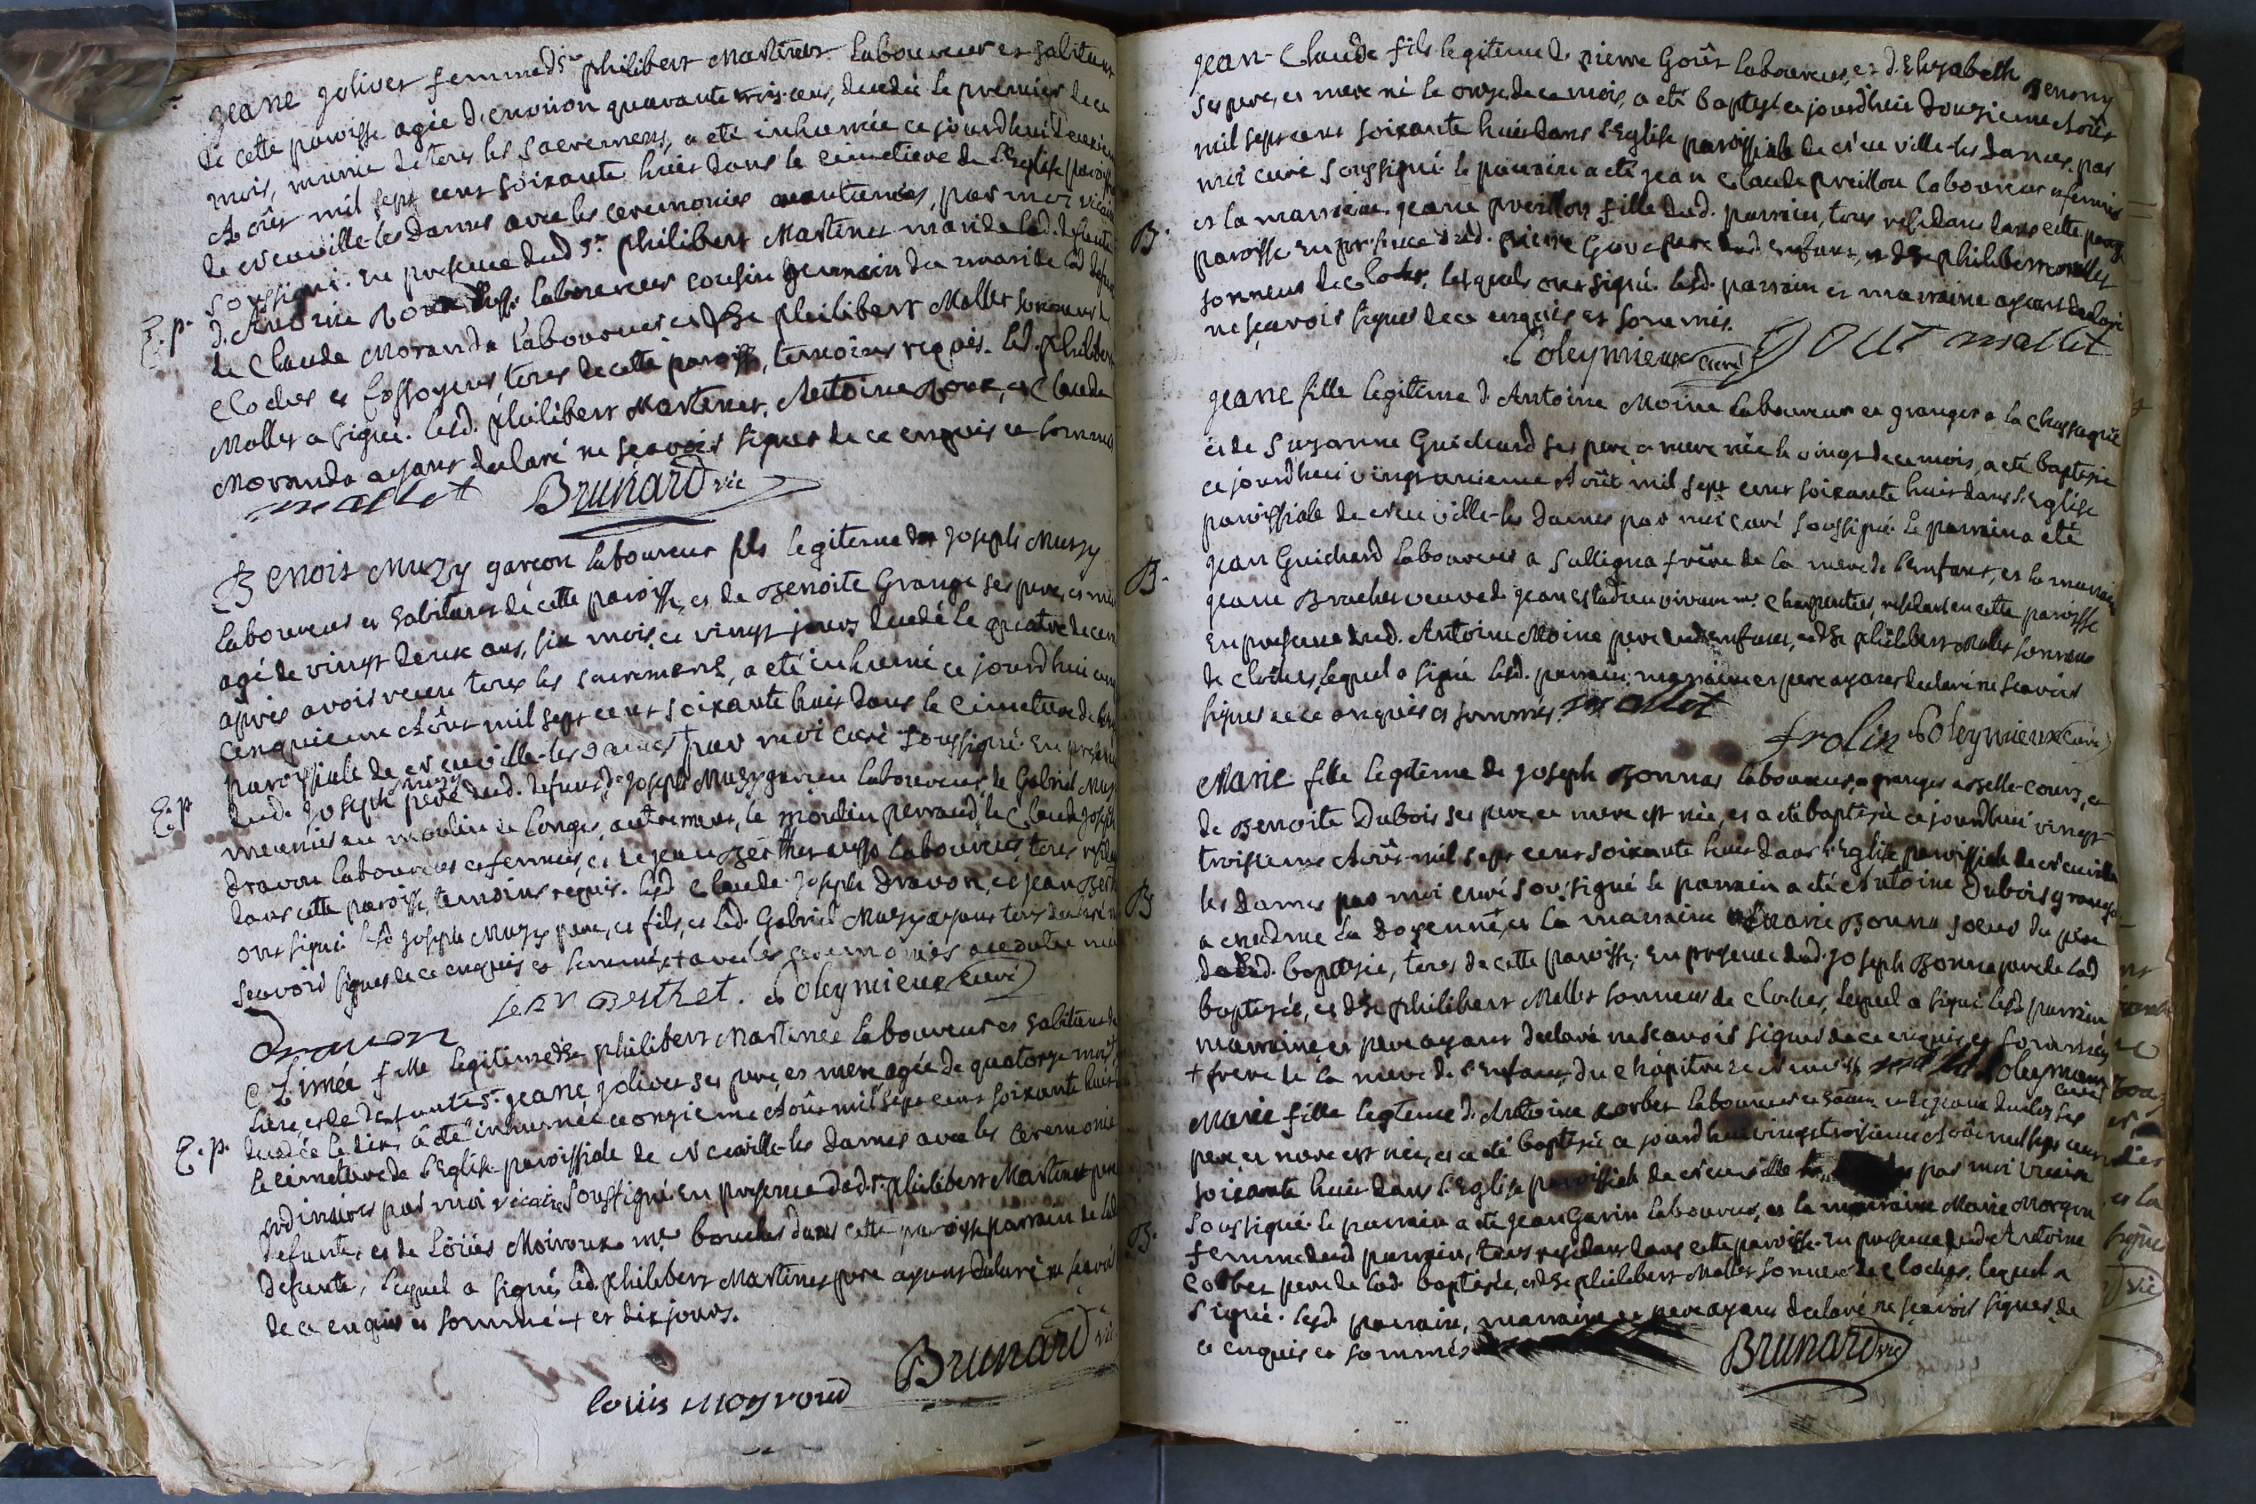 Jeane Jolivet femme d Sr philibert Martinet laboureur et habitant
de cette paroisse agée d'environ quarante trois ans, decedée le premier de ce
mois, munie de tous les sacremens, a eté inhumée ce jourd'hui deuxieme
Aoûst mil sept cent soixante huit dans le cimetiere de l'Eglise paroissi
de Neuville-les Dames avec les ceremonies accoutumées, par moi vicaire
soussigné. En presence dud Sr. philibert Martinet mari de lad. defunte
E. p.
d. Antoine Roux laboureur cousin germain du mari de lad defunte
de Claude Moranda laboureur et d Sr philibert Mallet sonneur de
Cloches et fossoyeur, tous de cette paroisse, temoins requis. led. philibert
Mallet a signé. lesd. philibert Martinet, Antoine Roux, et Claude
Moranda ayant declaré ne sçavoir signer de ce enquis et sommés
mallet Brunard vic
Benoit Muzy garçon laboureur fils legitime de Joseph Muzy
laboureur et habitant de cette paroisse, et de Benoite Grange ses pere, et mere
agé de vingt deux ans, six mois, et vingt jours decedé le quatre de ce m
après avoir receu tous les sacremens, a eté inhumé ce jourd'hui
cinquieme Aoûst mil sept cent soixante huit dans le Cimetiere de l'eg
paroissiale de Neuville-les Dames + par moi curé soussigné. En presence
E. p
dud. Joseph Muzy pere dud. defunt, de Joseph Muzy laboureur, de Gabriel Muzy
meunier au moulin de longes, autrement, le moulin perraud, de Claude Joseph
dravon laboureur et fermier, et de Jean Berthet aussi laboureur, tous resida
dans cette paroisse, temoins requis. lesd Claude-Joseph Dravon, et Jean Berth
ont signé lesd Joseph Muzy pere, et fils, et led. Gabriel Muzy ayant tous declaré n
sçavoir signer de ce enquis et sommés + avec les ceremonies accoutumées
Dravon Jean Berthet. Poleymieux curé
Aimée fille legitime d Sr philibert Martinet laboureur et habitant de
lieu et de defunte Sr. Jeane Jolivet ses pere, et mere agée de quatorze mois +
E. p.
decedée le dix, a eté inhumée ce onzieme Aoûst mil sept cent soixante huit
le cimetiere de l'Eglise paroissiale de Neuville-les Dames avec les ceremonies
ordinaires par moi vicaire soussigné en presence dud Sr. philibert Martinet pere
defunte, et de Loüis Moiroux me boucher dans cette paroisse parrain de lad
defunte, lequel a signé, led. philibert Martinet pere ayant declaré ne sçavoir
de ce enquis et sommé + et dix jours.
Brunard vic
louis moyroud
Jean-Claude fils legitime de pierre Goût laboureur, et d. Elizabeth Benony
ses pere, et mere né le onze de ce mois, a eté baptizé ce jourd'hui douzieme Aoûst
mil sept cent soixante huit dans l'Eglise paroissiale de Neuville-les Dames, par
moi curé soussigné le parrain a eté Jean Claude preillon laboureur et fermier
et la marraine Jeane preillon fille dud. parrain, tous residans dans cette
B.
paroisse En presence dud. pierre Gout pere dud. enfant, et d Sr philibert mallet
sonneur de Cloches, lesquels ont signé. lesd. parrain et marraine ayant declaré
ne sçavoir signer de ce enquis et sommés.
Poleymieux curé gout mallet
Jeane fille legitime d Antoine Moine laboureur et granger a la Chassagne
et de Suzanne Guichard ses pere et mere née le vingt de ce mois, a eté baptizée
ce jourd'hui vingt unieme Aoûst mil sept cent soixante huit dans l'Eglise
paroissiale de Neuville-les Dames par moi curé soussigné. le parrain a eté
B.
Jean Guichard laboureur a Sulligna frère de la mere de l'enfant, et la marraine
Jeane Brachet veuve de Jean vivant me. Charpentier, residant en cette paroisse
En presence dud. Antoine Moine pere dud enfant, et d Sr philibert Mallet sonneur
de Cloches, lequel a signé lesd. parrain, marraine et pere ayant declaré ne scavoir
signer de ce enquis et sommés. mallet
frolin Poleymieux curé
Marie fille legitime de Joseph Bonnas laboureur, et granger a Belle-cour, et
de Benoite Dubois ses pere, et mere est née, et a eté baptizée ce jourd'hui vingt
troisieme Aoûst mil sept cent soixante huit dans l'Eglise paroissiale de Neuville
les dames par moi curé soussigné le parrain a eté Antoine Dubois granger
B
a la Doyenné +, et la marraine Marie Bonna soeur du pere
de lad. baptizée, tous de cette paroisse. En presence dud. Joseph Bonna pere de lad
baptizée, et d Sr philibert Mallet sonneur de Cloches, lequel a signé lesd. parrain
marraine et pere ayant declaré ne scavoir signer de ce enquis, et sommés
+ frere de la mere de l'enfant, du Chapitre de Neuville mallet Poleymieux curé
Marie fille legitime d. Antoine Corbet laboureur et de Jeane ses
pere, et mere est née, et a eté baptizée ce jourd'hui vingt troisieme Aoûst mil sept cent
soixante huit dans l'Eglise paroissiale de Neuville par moi vicaire
soussigné. le parrain a eté Jean Garin laboureur, et la marraine Marie Morgon
B.
femme dud parrain, tous residans dans cette paroisse. En presence dud. Antoine
Corbet pere de lad baptizée, et d Sr philibert Mallet sonneur de Cloches, lequel a
signé. lesd. parrain, marraine et pere ayant declaré ne sçavoir signer de
ce enquis et sommés
Brunard vic